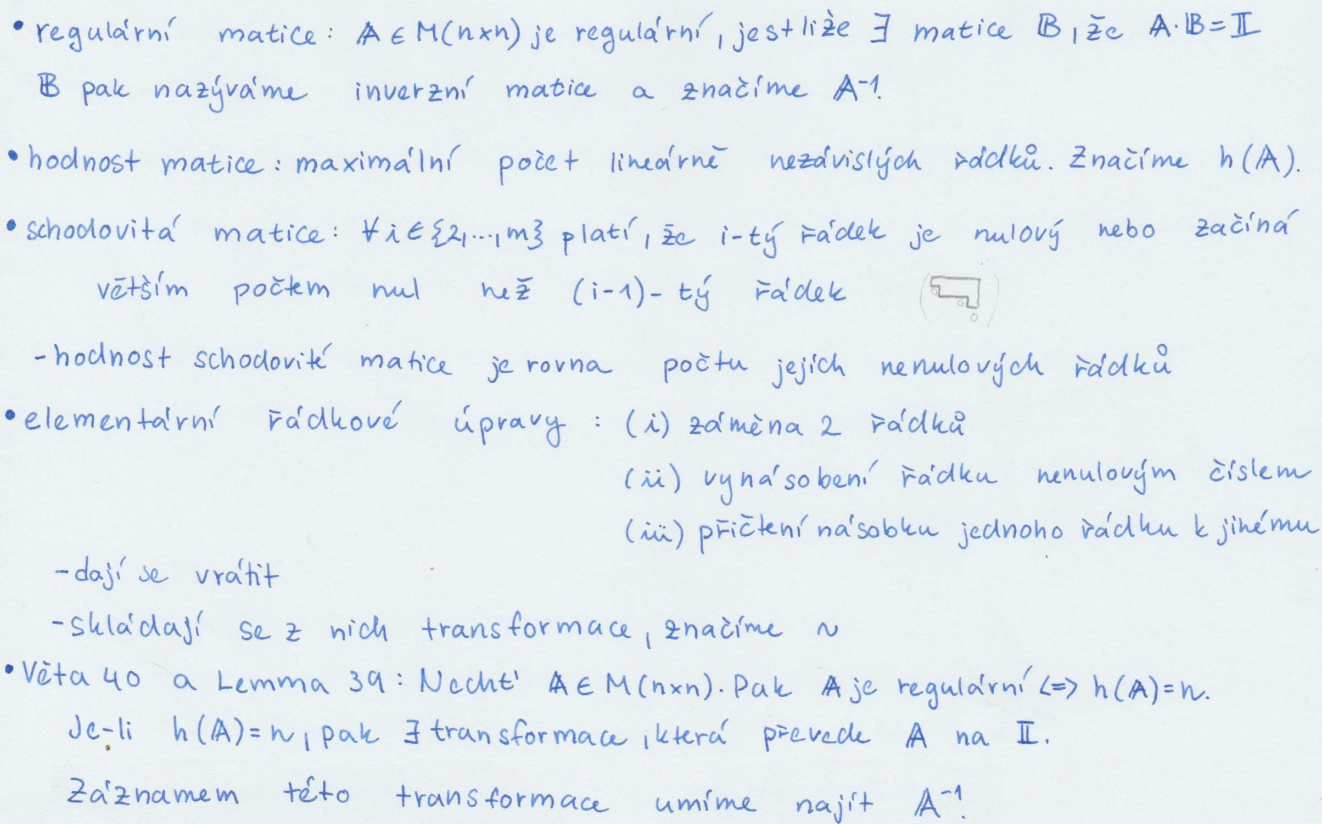 • regulární matice: 𝔸 ∈ M(n×n) je regulární, jestliže ∃ matice 𝔹, že 𝔸·𝔹=𝕀
𝔹 pak nazýváme inverzní matice a značíme 𝔸⁻¹.
• hodnost matice: maximální počet lineárně nezávislých řádků. Značíme h(𝔸).
• schodovitá matice: ∀i∈{2,...,m} platí, že i-tý řádek je nulový nebo začíná
větším počtem nul než (i-1)-tý řádek
- hodnost schodovité matice je rovna počtu jejích nenulových řádků
• elementární řádkové úpravy: (i) záměna 2 řádků
(ii) vynásobení řádku nenulovým číslem
(iii) přičtení násobku jednoho řádku k jinému
- dají se vrátit
- skládají se z nich transformace, značíme ~
• Věta 40 a Lemma 39: Nechť 𝔸 ∈ M(n×n). Pak 𝔸 je regulární <=> h(𝔸)=n.
Je-li h(𝔸)=n, pak ∃ transformace, která převede 𝔸 na 𝕀.
Záznamem této transformace umíme najít 𝔸⁻¹.